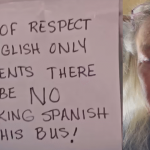 OF RESPECT
GLISH ONLY
ENTS THERE
BE NO
KING SPANISH
HIS BUS!